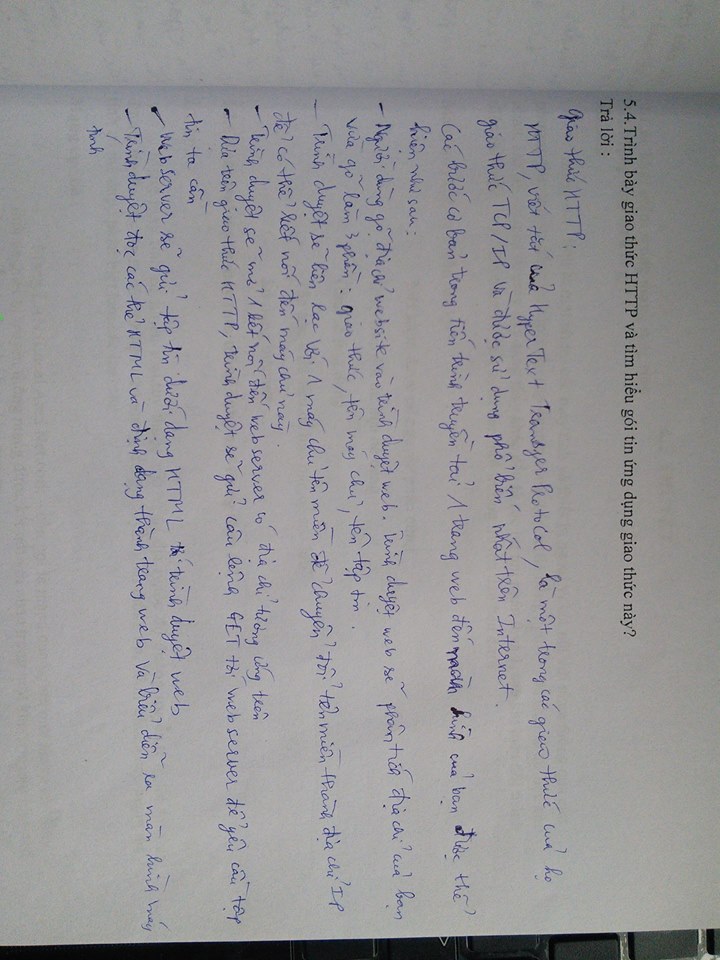 5.4.Trình bày giao thức HTTP và tìm hiểu gói tin ứng dụng giao thức này?
Trả lời :
Giao thức HTTP :
HTTP, viết tắt của HyperText Transfer Protocol, là một trong các giao thức của họ
giao thức TCP/IP và được sử dụng phổ biến nhất trên Internet.
Các bước cơ bản trong tiến trình truyền tải 1 trang web đến màn hình của bạn được thể
hiện như sau :
- Người dùng gõ địa chỉ website vào trình duyệt web. Trình duyệt web sẽ phân tích địa chỉ của bạn
vừa gõ làm 3 phần : giao thức, tên máy chủ, tên tập tin.
- Trình duyệt sẽ liên lạc với 1 máy chủ tên miền để chuyển đổi tên miền thành địa chỉ IP
để có thể kết nối đến máy chủ này.
- Trình duyệt sẽ mở 1 kết nối đến web server có địa chỉ tương ứng trên
- Dựa trên giao thức HTTP, trình duyệt sẽ gửi câu lệnh GET tới web server để yêu cầu tập
tin ta cần
- Web server sẽ gửi tập tin dưới dạng HTML trình duyệt web
- Trình duyệt đọc các thẻ HTML và định dạng thành trang web và biểu diễn ra màn hình máy
tính